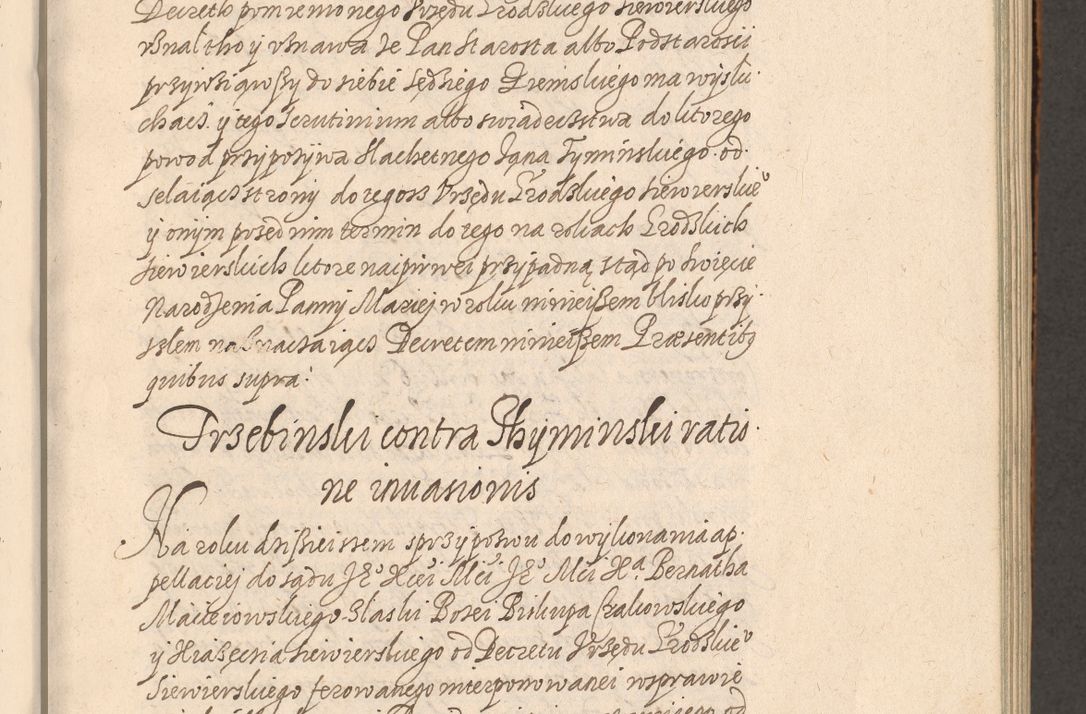 Decretu pomienionego Urzędu Grodzkiego Siewierskiego
uznał tho y uznawa że Pan Starosta albo Podstarosci
przyiwszi do siebie Sędziego Ziemskiego ma wysłu
chacz y tego Scrutinium albo swiadecztwa do ktorego
powod przypozywa Slachetnego Jana Tyminskiego od
selaiącz strony do tegosz Urzędu Grodzkiego Siewierskie°
y onym przed nim termin do tego na rokach Grodzkich
Siewierskich ktore naipirwei przypadną stąd po Swięcie
Narodzenia Panny Mariej w roku ninieiszem blisko przy
szlem naznaczaiącz Decretem ninieiszem Præsentibȝ
quibus supra.
Trzebinski contra Thyminski ratio
ne inuasionis
Na roku dzisieiszem z przypozwu do wykonania ap
pellaciej do sądu Je° Xcei Mci Je° Mci Xa. Bernatha
Macieiowskiego z łaski Bozei Biskupa Krakowskiego
y Xiażęcia Siewierskiego od Decretu Urzędu Grodzkie°
Siewierskiego ferowanego interponowanei w sprawie